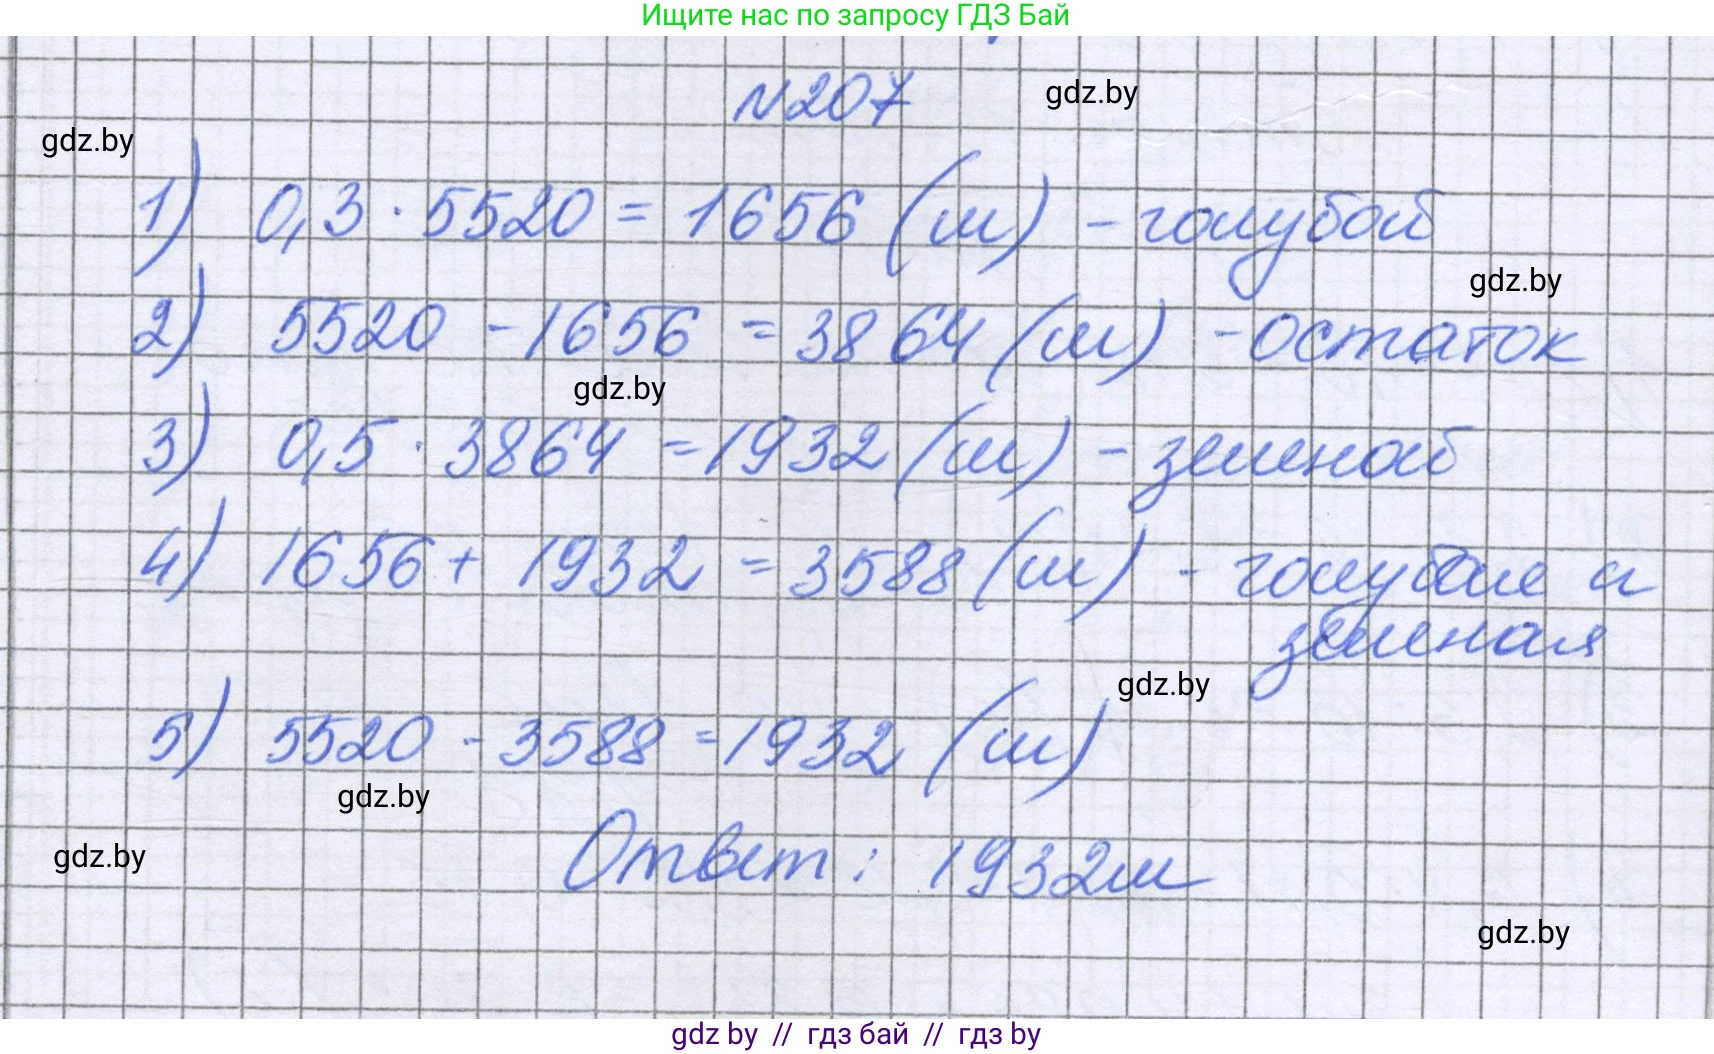 Ищите нас по запросу ГДЗ Бай
№207
gdz.by
gdz.by
1) 0,3 · 5520 = 1656 (м) - голубой
gdz.by
2) 5520 - 1656 = 3864 (м) - остаток
gdz.by
3) 0,5 · 3864 = 1932 (м) - зеленой
4) 1656 + 1932 = 3588 (м) - голубые и
зеленая
gdz.by
5) 5520 - 3588 = 1932 (м)
gdz.by
Ответ: 1932м
gdz.by
gdz.by
gdz by // гдз бай // гдз by